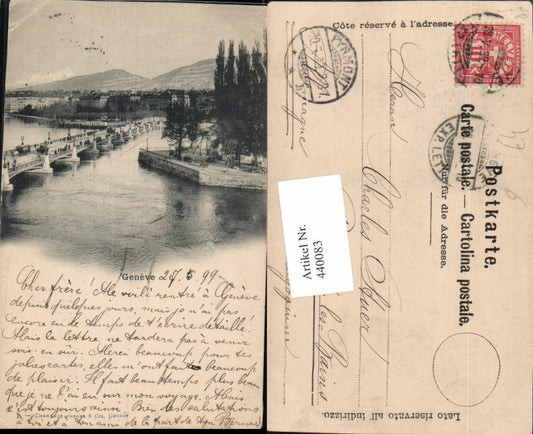 Genève 27.5.99
Cher frère! Me voilà rentré à Genève
depuis quelques jours, mais je n'ai pas
encore eu de temps de t'écrire détaillé.
Mais la lettre ne tardera pas à venir
sois-en sûr. Merci beaucoup pour tes
jolies cartes, elles m'ont fait beaucoup
de plaisir. Il fait beau temps plus beau
que je ne l'ai eu sur mon voyage. Mais
c'est toujours ainsi. Bien des salutations
à toi et à de la part de ton Bernard
& Cie, Genève
Côte réservé à l'adresse.
PYRMONT
HELVETIA
Postkarte.
Carte postale. — Cartolina postale.
Nur für die Adresse.
Lato riservato all' indirizzo.
EXP. LET.
Herrn
Charles
les Bains
Artikel Nr.
440083